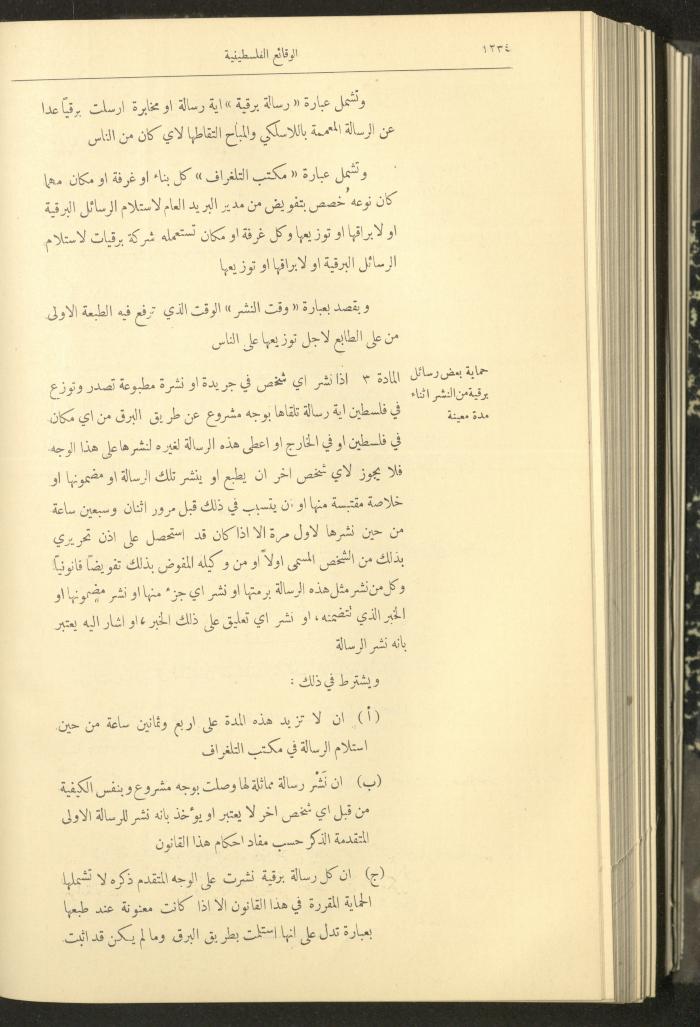 ١٢٣٤
الوقائع الفلسطينية
وتشمل عبارة «رسالة برقية» اية رسالة او مخابرة ارسلت برقيّا عدا
عن الرسالة المعممة باللاسلكي والمباح التقاطها لاي كان من الناس
وتشمل عبارة «مكتب التلغراف» كل بناء او غرفة او مكان مهما
كان نوعه خصص بتفويض من مدير البريد العام لاستلام الرسائل البرقية
او لابراقها او توزيعها وكل غرفة او مكان تستعمله شركة برقيات لاستلام
الرسائل البرقية او لابراقها او توزيعها
ويقصد بعبارة «وقت النشر» الوقت الذي ترفع فيه الطبعة الاولى
من على الطابع لاجل توزيعها على الناس
حماية بعض رسائل
برقية من النشر اثناء
مدة معينة
المادة ٣ اذا نشر اي شخص في جريدة او نشرة مطبوعة تصدر وتوزع
في فلسطين اية رسالة تلقاها بوجه مشروع عن طريق البرق من اي مكان
في فلسطين او في الخارج او اعطى هذه الرسالة لغيره لنشرها على هذا الوجه
فلا يجوز لاي شخص اخر ان يطبع او ينشر تلك الرسالة او مضمونها او
خلاصة مقتبسة منها او ان يتسبب في ذلك قبل مرور اثنان وسبعين ساعة
من حين نشرها لاول مرة الا اذا كان قد استحصل على اذن تحريري
بذلك من الشخص المسمى اولاً او من وكيله المفوض بذلك تفويضًا قانونيًا
وكل من نشر مثل هذه الرسالة برمتها او نشر اي جزء منها او نشر مضمونها او
الخبر الذي تتضمنه، او نشر اي تعليق على ذلك الخبر، او اشار اليه يعتبر
بانه نشر الرسالة
ويشترط في ذلك :
(أ) ان لا تزيد هذه المدة على اربع وثمانين ساعة من حين
استلام الرسالة في مكتب التلغراف
(ب) ان نَشْر رسالة مماثلة لها وصلت بوجه مشروع وبنفس الكيفية
من قبل اي شخص اخر لا يعتبر او يؤخذ بانه نشر للرسالة الاولى
المتقدمة الذكر حسب مفاد احكام هذا القانون
(ج) ان كل رسالة برقية نشرت على الوجه المتقدم ذكره لا تشملها
الحماية المقررة في هذا القانون الا اذا كانت معنونة عند طبعها
بعبارة تدل على انها استلمت بطريق البرق وما لم يكن قد اثبت